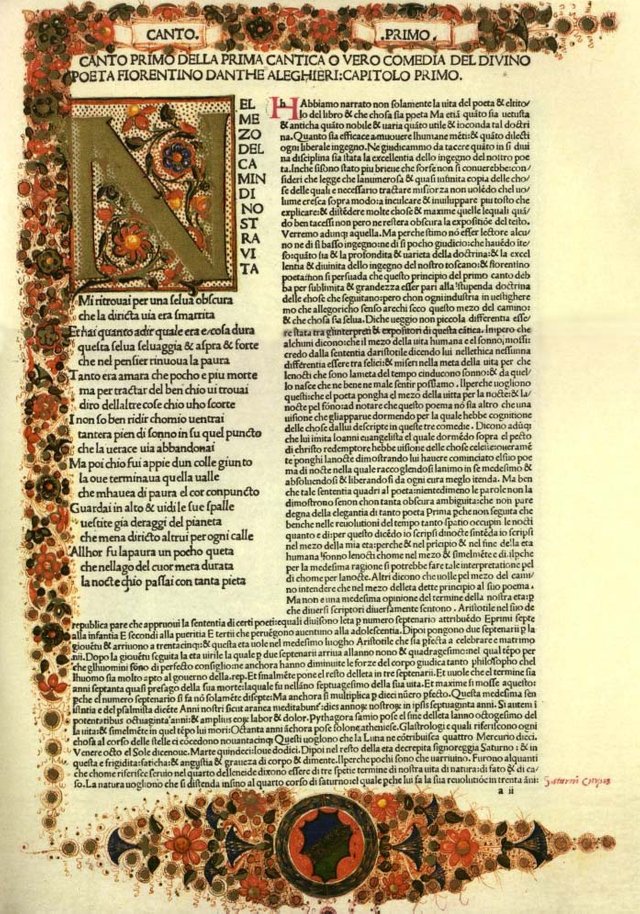 CANTO. PRIMO.
CANTO PRIMO DELLA PRIMA CANTICA O VERO COMEDIA DEL DIVINO
POETA FIORENTINO DANTHE ALEGHIERI: CAPITOLO PRIMO.
NEL
MEZO
DEL
CAMIN
DI NO
STRA
VI
TA
Mi ritrouai per una selua obscura
che la diricta uia era smarrita
Et hai quanto adir quale era e cosa dura
questa selua seluaggia & aspra & forte
che nel pensier rinuoua la paura
Tanto era amara che pocho e piu morte
ma per tractar del ben chio ui trouai
diro dellaltre cose chio uho scorte
I non so ben ridir chomio uentrai
tantera pien di sonno in su quel puncto
che la uerace uia abbandonai
Ma poi chio fui appie dun colle giunto
la oue terminaua quella ualle
che mhauea di paura el cor conpuncto
Guardai in alto & uidi le sue spalle
uestite gia deraggi del pianeta
che mena diricto altrui per ogni calle
Allhor fu la paura un pocho queta
che nellago del cuor mera durata
la nocte chio passai con tanta pieta
HAbbiamo narrato non solamente la uita del poeta & el tito/
lo del libro & che chosa sia poeta Ma etiā quāto sia uetusta
& anticha quāto nobile & uaria quāto utile & ioconda tal doctri
na. Quanto sia efficace a muouere lhumane mēti: & quāto dilecti
ogni liberale ingegno. Ne giudicammo da tacere quāto in si diui
na disciplina sia stata la excellentia dello ingegno del nostro poe
ta. Inche sifono stato piu brieue che forse non si conuerebbe: con
sideri che legge che la numerosa & quasi infinita copia delle cho/
se delle quali e necessario tractare mi sforza non uolēdo chel uo/
lume cresca sopra modo: a inculcare & inuiluppare piu tosto che
explicare: & distēdere molte chose & maxime quelle lequali quā/
do ben tacessi non pero ne restera obscura la expositiōe del testo.
Verremo adunque aquella. Ma perche stimo nō esser lectore alcu/
no ne di si basso ingegno: ne di si pocho giudicio: che hauēdo ite/
so: quāto sia & la profondita & uarieta della doctrina: & la excel
lentia & diuinita dello ingegno del nostro toscano: & fiorentino
poeta: non si persuada che questo principio del primo canto deb
ba per sublimita & grandezza esser pari alla stupenda doctrina
delle chose che seguitano: pero chon ogni industria inuestighere
mo che allegorico senso arechi seco questo mezo del camino:
& che chosa sia selua. Diche ueggio non piccola differentia esse/
re stata tra glinterpreti & expositori di questa cātica. Impero che
alchuni dicono: che il mezo della uita humana e el sonno, mossi
credo dalla sententia daristotile dicendo lui nellethica nessuna
differentia essere tra felici: & miseri nella meta della uita per che
le nocti che sono la meta del tempo cinducono sonno: & da quel/
lo nasce che ne bene ne male sentir possiamo. Ilperche uogliono
questi: che el poeta ponga el mezo della uita per la nocte: & la/
nocte pel sōno: ad notare che questo poema nō sia altro che una
uisione che gliapparue dormendo per la quale hebbe cognitione
delle chose dallui descripte in queste tre comedie. Dicono adūq;
che lui imita Ioanni euangelista el quale dormēdo sopra el pecto
di christo redemptore hebbe uisione delle chose celesti: oueramē
te ponghi lanocte dimostrando lui hauere cominciato el suo poe
ma di nocte nella quale raccogliendosi lanimo in se medesimo &
absoluendosi & liberandosi da ogni cura meglo intenda. Ma ben
che tale sententia quadri al poeta: nientedimeno le parole non la
dimostrono senon chon tanta obscura ambiguita: che non pare
degna della elegantia di tanto poeta Prima pche non seguita che
benche nelle reuolutioni del tempo tanto spatio occupin le nocti
quanto e di: per questo dicēdo io scripsi dinocte sintēda io scripsi
nel mezo della mia eta: perche & nel pricipio & nel fine della eta
humana sonno lenocti chome nel mezo & similmēte e di. ilpche
per la medesima ragione si potrebbe fare tale interpretatione pel
di chome per lanocte. Altri dicono che uolle pel mezo del cami/
no intendere che nel mezo delleta dette principio al suo poema.
Ma non e una medesima opinione del termine della nostra eta: p
che diuersi scriptori diuersamente sentono. Aristotile nel suo de
republica pare che appruoui la sententia di certi poeti: equali diuisono leta p numero septenario attribuēdo Eprimi septe
alla infantia E secondi alla pueritia E tertii che peruēgono auentuno alla adolescentia. Dipoi pongono due septenarii p la
giouētu & arriuono a trentacinq;: & questa eta iuole nel medesimo luogho Aristotile che sia pfecta a celebrare e matrimo
nii. Dopo la giouētu seguita la eta uirile la quale p due septenarii arriua allanno nono & quadragesimo: nel qual tēpo per
che glhuomini sōno di perfecto consiglione anchora hanno diminuite le forze del corpo giudica tanto philosopho chel
lhuomo sia molto apto al gouerno della .rep. Et finalmēte pone el resto delleta in tre septenarii. Et uuole che el termine sia
anni septanta quasi presago della sua morte: laquale fu nellāno septuagesimo della sua uita. Et maxime si mosse aquesto:
pche el numero septenario si fa nō solamēte disepte: Ma anchora si multiplica p dieci nūero pfecto. Questa medesima sen
tentia e del psalmista dicēte Anni nostri sicut aranea meditabunt: dies annoꝵ nostroꝵ in ipsis septuaginta anni. Si autem i
potentatibus octuaginta anni: & amplius eoꝵ labor & dolor. Pythagora samio pose el fine delleta lanno octogesimo del
la uita: & similmēte in quel tēpo lui mori: Octanta anni āchora pose solone atheniese. Glastrologi e quali riferiscono ogni
chosa al corso delle stelle ei cōcedono nouātacinq; Questi uogliono che la Luna ne cōtribuisca quattro Mercurio dieci.
Venere octo el Sole dicenoue. Marte quindeci: Ioue dodici. Dipoi nel resto della eta decrepita signoreggia Saturno: & in
questa e frigidita: siticha: & angustia & graueza di corpo & di mente. Ilperche pochi sono che uarriuino. Furono alquanti
che chome riferisce seruio nel quarto delleneide dixono essere di tre spetie termini di nostra uita di natura: di fato & di ca/
so. La natura uogliono che si distenda insino al quarto corso di saturno el quale pche lui fa la sua reuolutiōe in trenta āni:
a ii